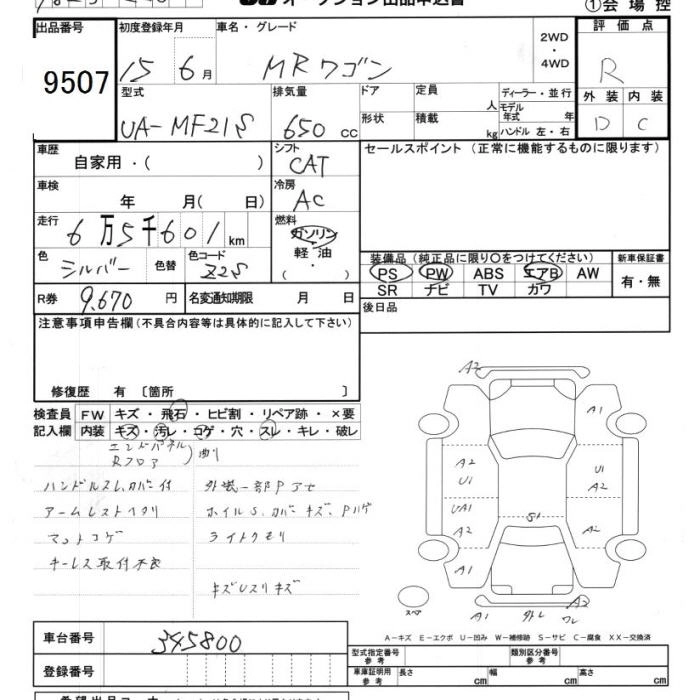 オークション出品申込書
①会場控
出品番号 初度登録年月 車名・グレード 2WD・4WD 評価点
9507 15 6月 MRワゴン R
型式 排気量 ドア 定員 人 ディーラー・並行 外装 内装
UA-MF21S 650 cc 形状 積載 kg モデル年式 年 D C
ハンドル 左・右
車歴 自家用・( ) シフト CAT セールスポイント (正常に機能するものに限ります)
車検 年 月( 日) 冷房 AC
走行 6万5千601km 燃料 ガソリン
軽油・( )
色 シルバー 色替 色コード Z2S
装備品(純正品に限り〇をつけてください) 新車保証書
PS PW ABS エアB AW 有・無
SR ナビ TV カワ
R券 9,670円 名変通知期限 月 日 後日品
注意事項申告欄(不具合内容等は具体的に記入して下さい)
修復歴 有〔箇所 〕
検査員 FW キズ・飛石・ヒビ割・リペア跡・×要
記入欄 内装 キズ・汚レ・コゲ・穴・スレ・キレ・破レ
エンドパネル
Rフロア 曲り
ハンドルスレ、カバー付 外装一部Pアセ
アームレストヘタリ ホイルS、カバーキズ、Pハゲ
マットコゲ ライトクモリ
キーレス取付不良
キズUスリキズ
A2
A1
A2 U1
U1 A2
UA1 S1
A2 A2
A1
スペア
A1 外レ A2 ワレ
A-キズ E-エクボ U-凹み W-補修跡 S-サビ C-腐食 XX-交換済
車台番号 345800
登録番号
型式指定番号 参考 類別区分番号 参考
車庫証明用 参考 長さ cm 幅 cm 高さ cm
希望出品コーナー